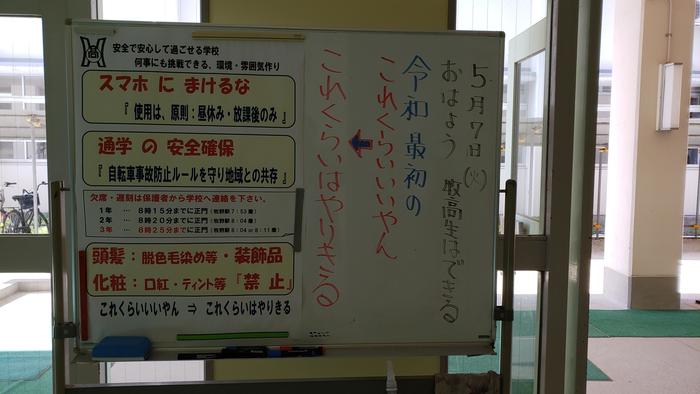 安全で安心して過ごせる学校
何事にも挑戦できる、環境・雰囲気作り
スマホ に まけるな
『 使用は、原則：昼休み・放課後のみ 』
通学 の 安全確保
『 自転車事故防止ルールを守り地域との共存 』
欠席・遅刻は保護者から学校へ連絡を下さい。
1年 … 8時15分までに正門（牧野駅7：53着）
2年 … 8時20分までに正門（牧野駅8：04着）
3年 … 8時25分までに正門（牧野駅8：04 or 8：11着）
頭髪：脱色毛染め等・装飾品
化粧：口紅・ティント等『禁 止』
これくらいいいやん ⇒ これくらいはやりきる
5月7日(火)
おはよう 牧高生はできる
令和 最初の
これくらいいいやん
←
これくらいはやりきる